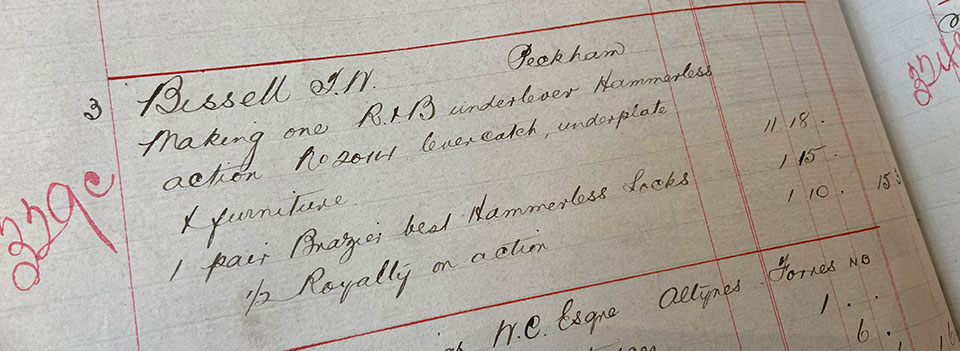 3 Bissell T.W. Peckham
Making one R.&B underlever Hammerless
action No 2014 lever catch, underplate
& furniture. 11 18 .
1 pair Brazier best Hammerless Locks 1 15 .
1/2 Royalty on action 1 10 . 15
339c
W.C. Esqre Altyres Forres NB
1 . .
6 .